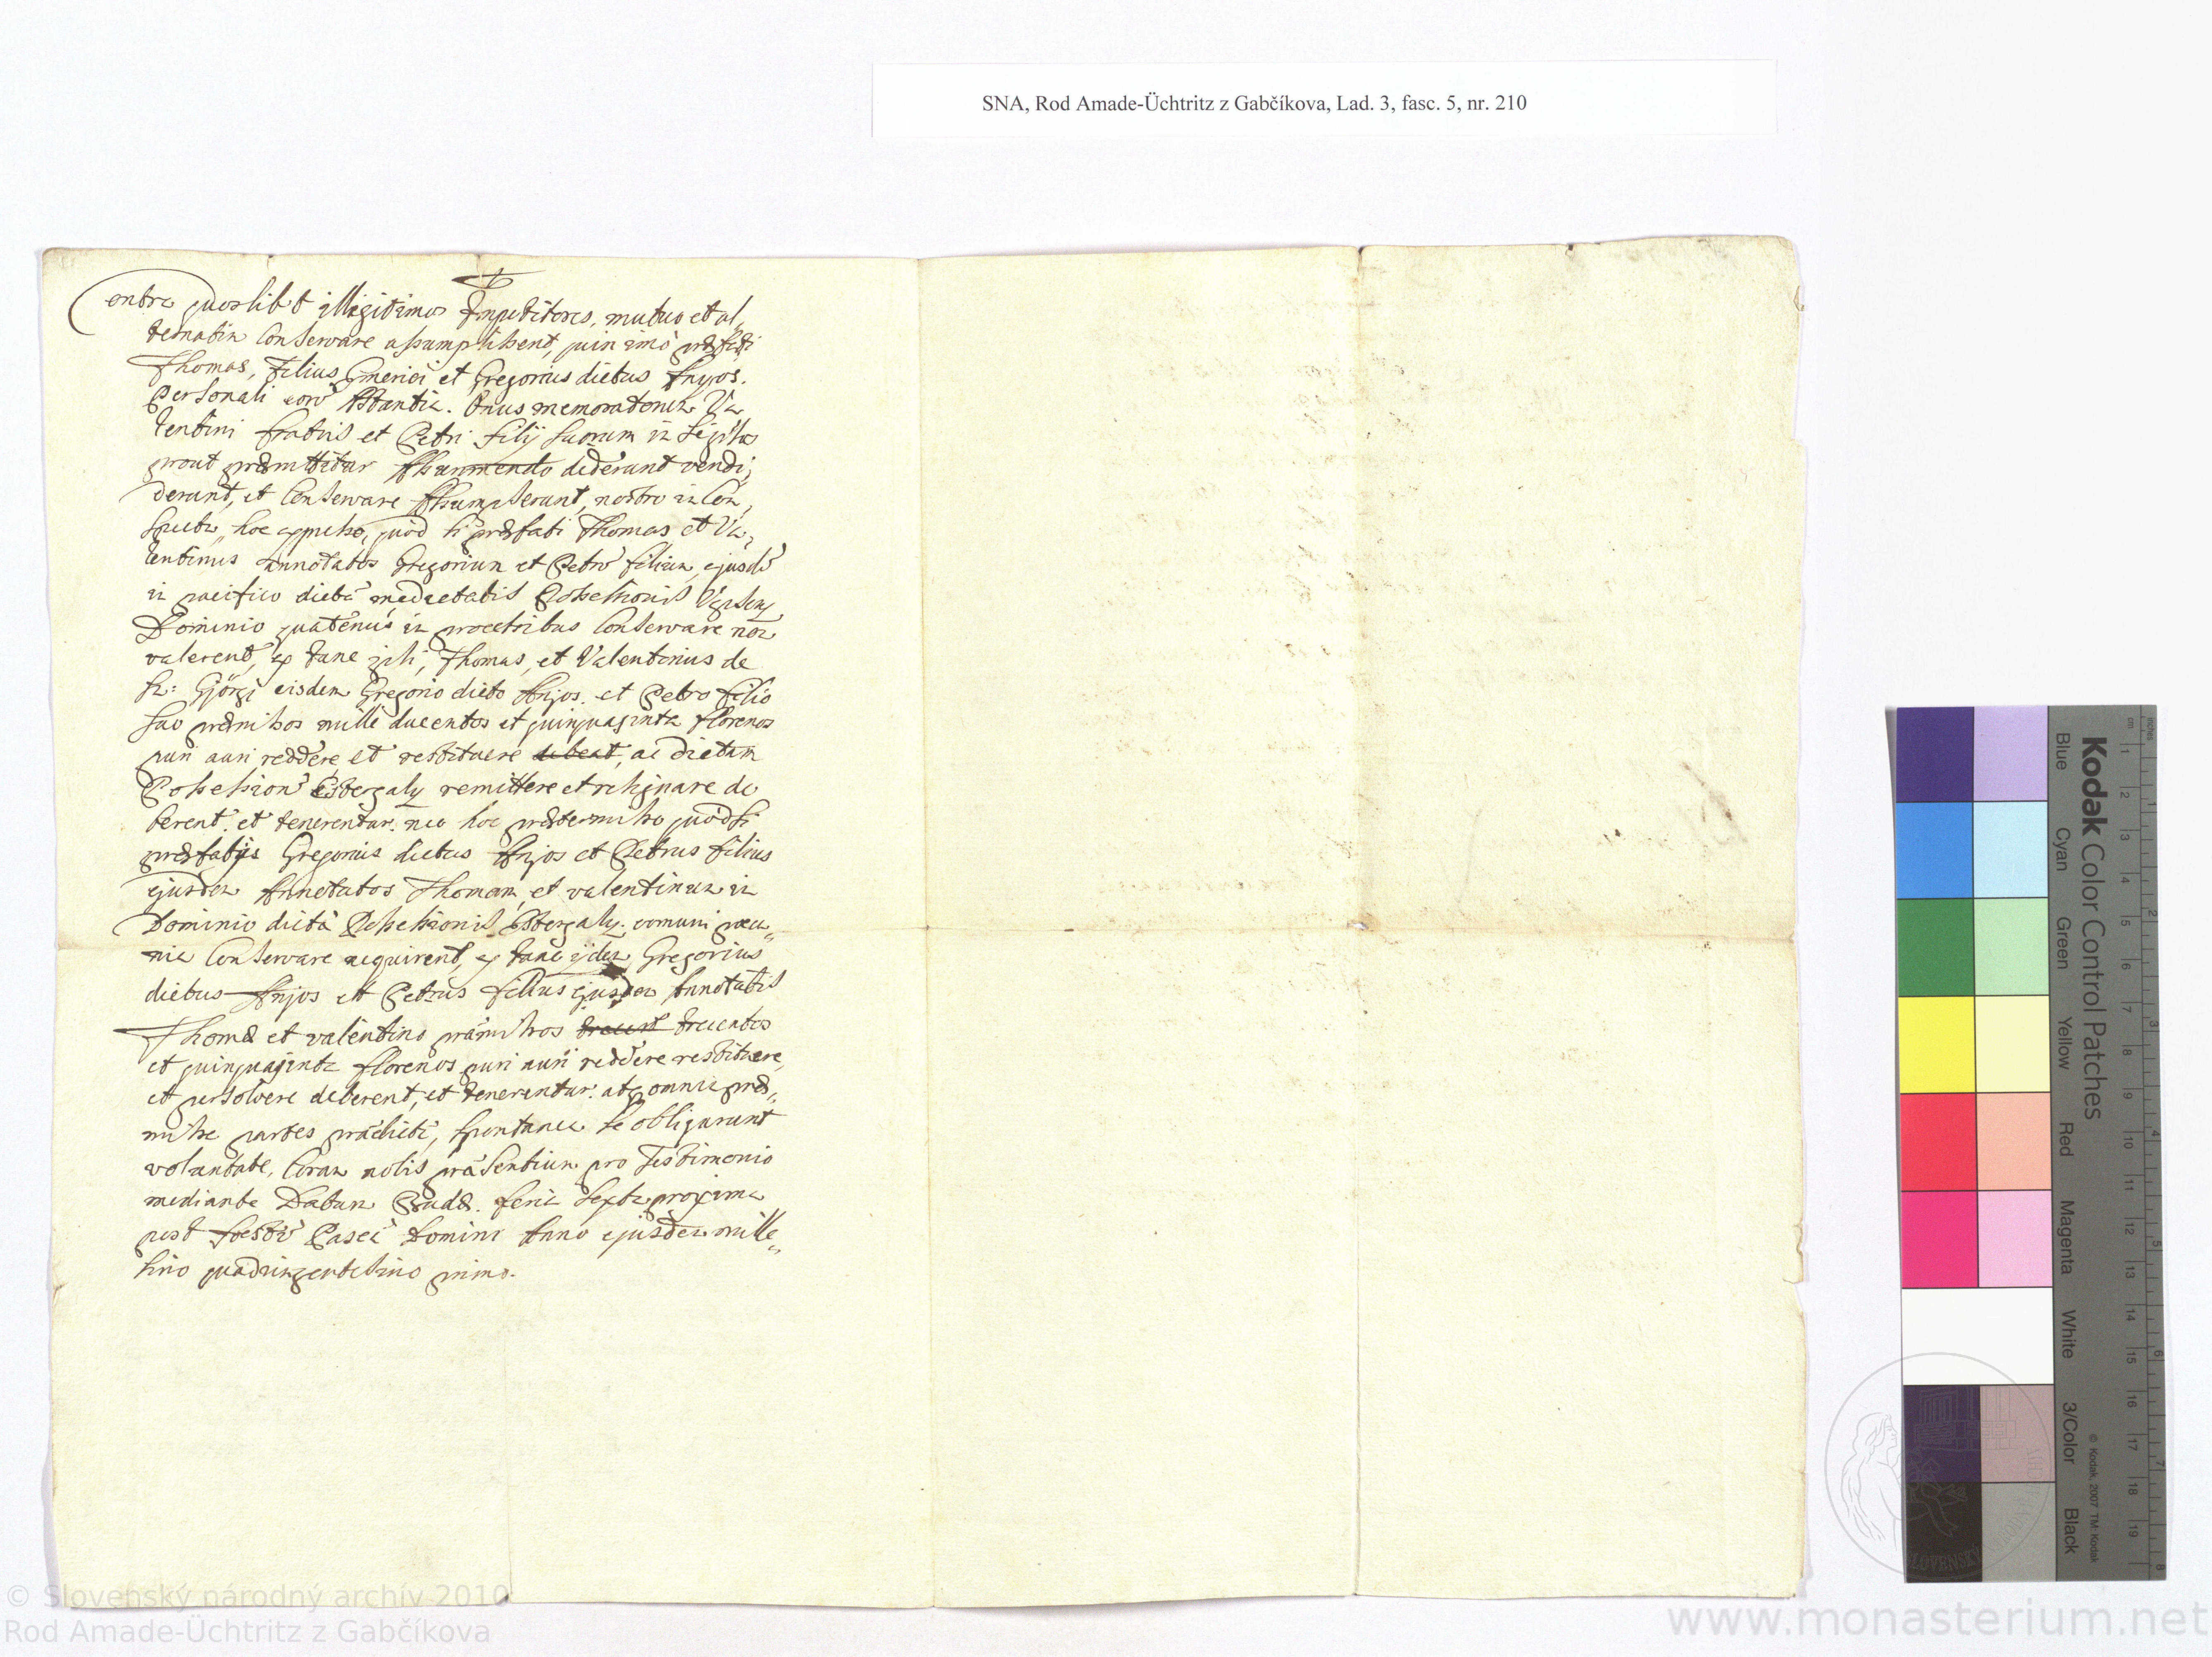 SNA, Rod Amade-Üchtritz z Gabčíkova, Lad. 3, fasc. 5, nr. 210
Contra quoslibet illegitimos Impetitores, mutuo et al„
ternatim Conservare assumpsissent, quin imo præfati
Thomas, Filius Emerici et Gregorius dictus Anyos.
Personali Onus memoratorum Va„
lentini fratris et Petri filij suorum in se
prout præmittitur Assumendo dederunt vendi„
derunt, et Conservare Assumpserunt, nostro in Con„
spectu, hoc expresso, quòd si præfati Thomas et Va„
lentinus annotatos Gregorium et Petrū filium ejusdē
in pacifico dictæ medietatis Possessionis
Dominio quatenus in processibus Conservare non
valerent, ex tunc ipsi, Thomas, et Valentinus de
Sz: Györgÿ eisdem Gregorio dicto Anjos. et Petro filio
suo præmissos mille ducentos et quinquaginta florenos
puri auri reddere et restituere debeat, ac dictam
Possession̄ Eszergaly remittere et resignare de
berent. et tenerentur. nec hoc prætermisso quòd si
præfatijs Gregorius dictus Anjos et Petrus filius
ejusdem Annotatos Thomam, et valentinum in
Dominio dictæ Possessionis Esztergaly.
Conservare nequirent, ex tunc ijdem, Gregorius
dictus Anjos et Petrus filius ejusdem Annotatis
Thomæ et valentino præmissos trecent trecentos
et quinquaginta florenos puri auri reddere restituere,
et persolvere deberent, et tenerentur. atq omnia præ„
missæ partes prædictæ, spontanea se obligarunt
voluntate, Coram nobis præsentium pro Testimonio
mediante Datum Budæ. feria sexta proxima
post festū Pascæ Domini Anno ejusdem mille„
simo quadringentesimo primo.
Kodak Color Control Patches
Blue
Cyan
Green
Yellow
Red
Magenta
White
3/Color
Black
© Kodak, 2007 TM: Kodak
© Slovenský národný archív 2010
Rod Amade-Üchtritz z Gabčíkova
www.monasterium.net